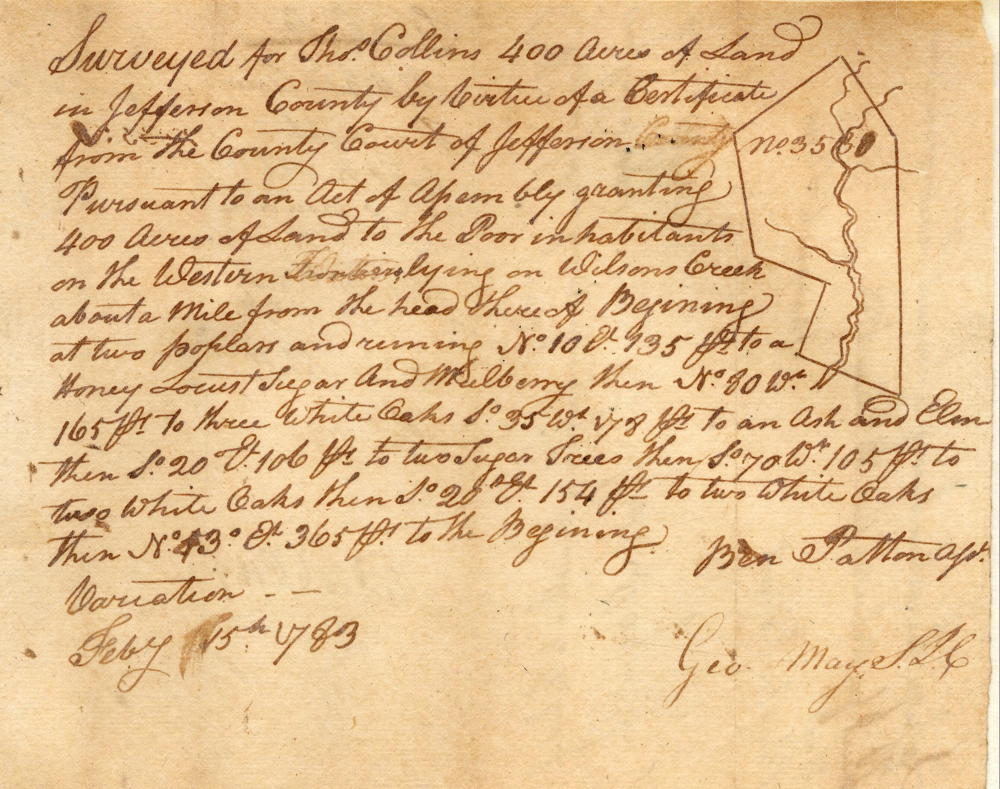 Surveyed for Thos. Collins 400 Acres of Land
in Jefferson County by Virtue of a Certificate
from the County Court of Jefferson County
Pursuant to an Act of Assembly granting
400 Acres of Land to the Poor inhabitants
on the Western lying on Wilsons Creek
about a Mile from the head thereof Begining
at two poplars and runing No. 10 Et. 135 ps. to a
Honey Locust Sugar And Mulberry then No. 80 Wt.
165 ps. to three White Oaks So. 35 Wt. 178 ps. to an Ash and Elm
then So. 20 Et. 106 ps. to two Sugar Trees then So. 70 Wt. 105 ps. to
two White Oaks then So. 20° Et. 154 ps. to two White Oaks
then No. 43° Et. 365 ps. to the Begining
Variation - -
Feby 15th 1783
Ben Patton Ast.
Geo. May S.J.C
No. 35